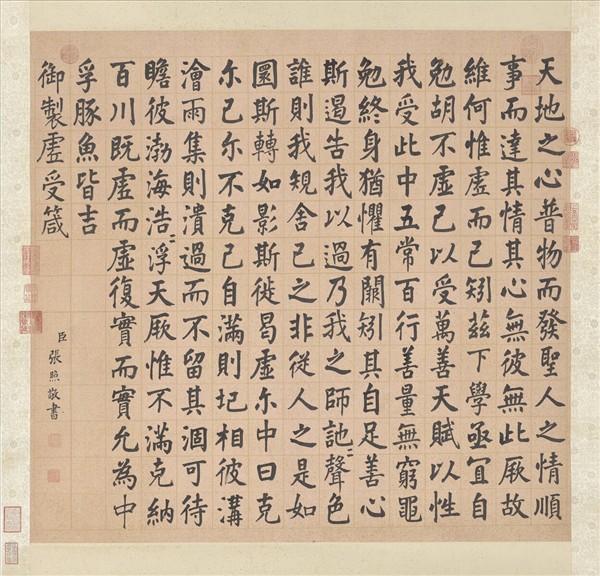 天地之心普物而發聖人之情順
事而達其情其心無彼無此厥故
維何惟虛而已矧茲下學亟宜自
勉胡不虛己以受萬善天賦以性
我受此中五常百行善量無窮黽
勉終身猶懼有闕矧其自足善心
斯遏告我以過乃我之師訑〻聲色
誰則我規舍己之非從人之是如
圜斯轉如影斯徙曷虛尔中曰克
尔己尔不克己自滿則圮相彼溝
澮雨集則潰過而不留其涸可待
瞻彼渤海浩〻浮天厥惟不滿克納
百川既虛而虛復實而實允為中
孚豚魚皆吉
御製虛受箴
臣張照敬書